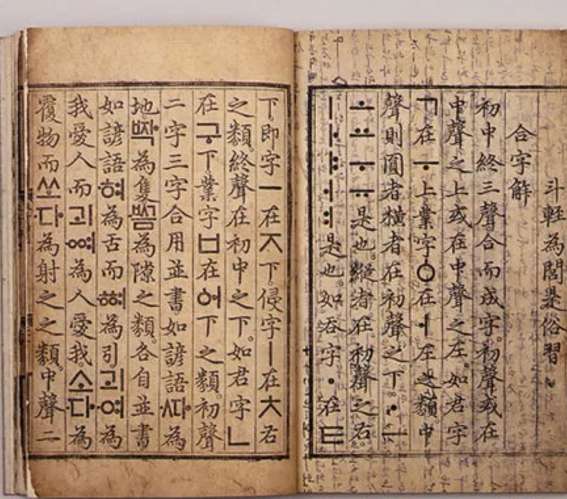 斗輕為閭是俗習
合字解
初中終三聲合而成字。初聲或在
中聲之上。或在中聲之左。如君字
ㄱ在ㅜ上。業字ㆁ在ㅓ左之類。中
聲則圓者橫者在初聲之下。ㆍㅡ
ㅗㅛㅜㅠ是也。縱者在初聲之右。
ㅣㅏㅑㅓㅕ是也。如呑字ㆍ在ㅌ
下。即字ㅡ在ㅈ下。侵字ㅣ在ㅊ右
之類。終聲在初中之下。如君字ㄴ
在구下。業字ㅂ在ᅌᅥ下之類。初聲
二字三字合用並書。如諺語ᄯᅡ為
地。ᄧᅡᆨ為隻。ᄢᅳᆷ為隙之類。各自並書。
如諺語혀為舌而ᅘᅧ為引。괴여為
我愛人而괴ᅇᅧ為人愛我。소다為
覆物而쏘다為射之之類。中聲二